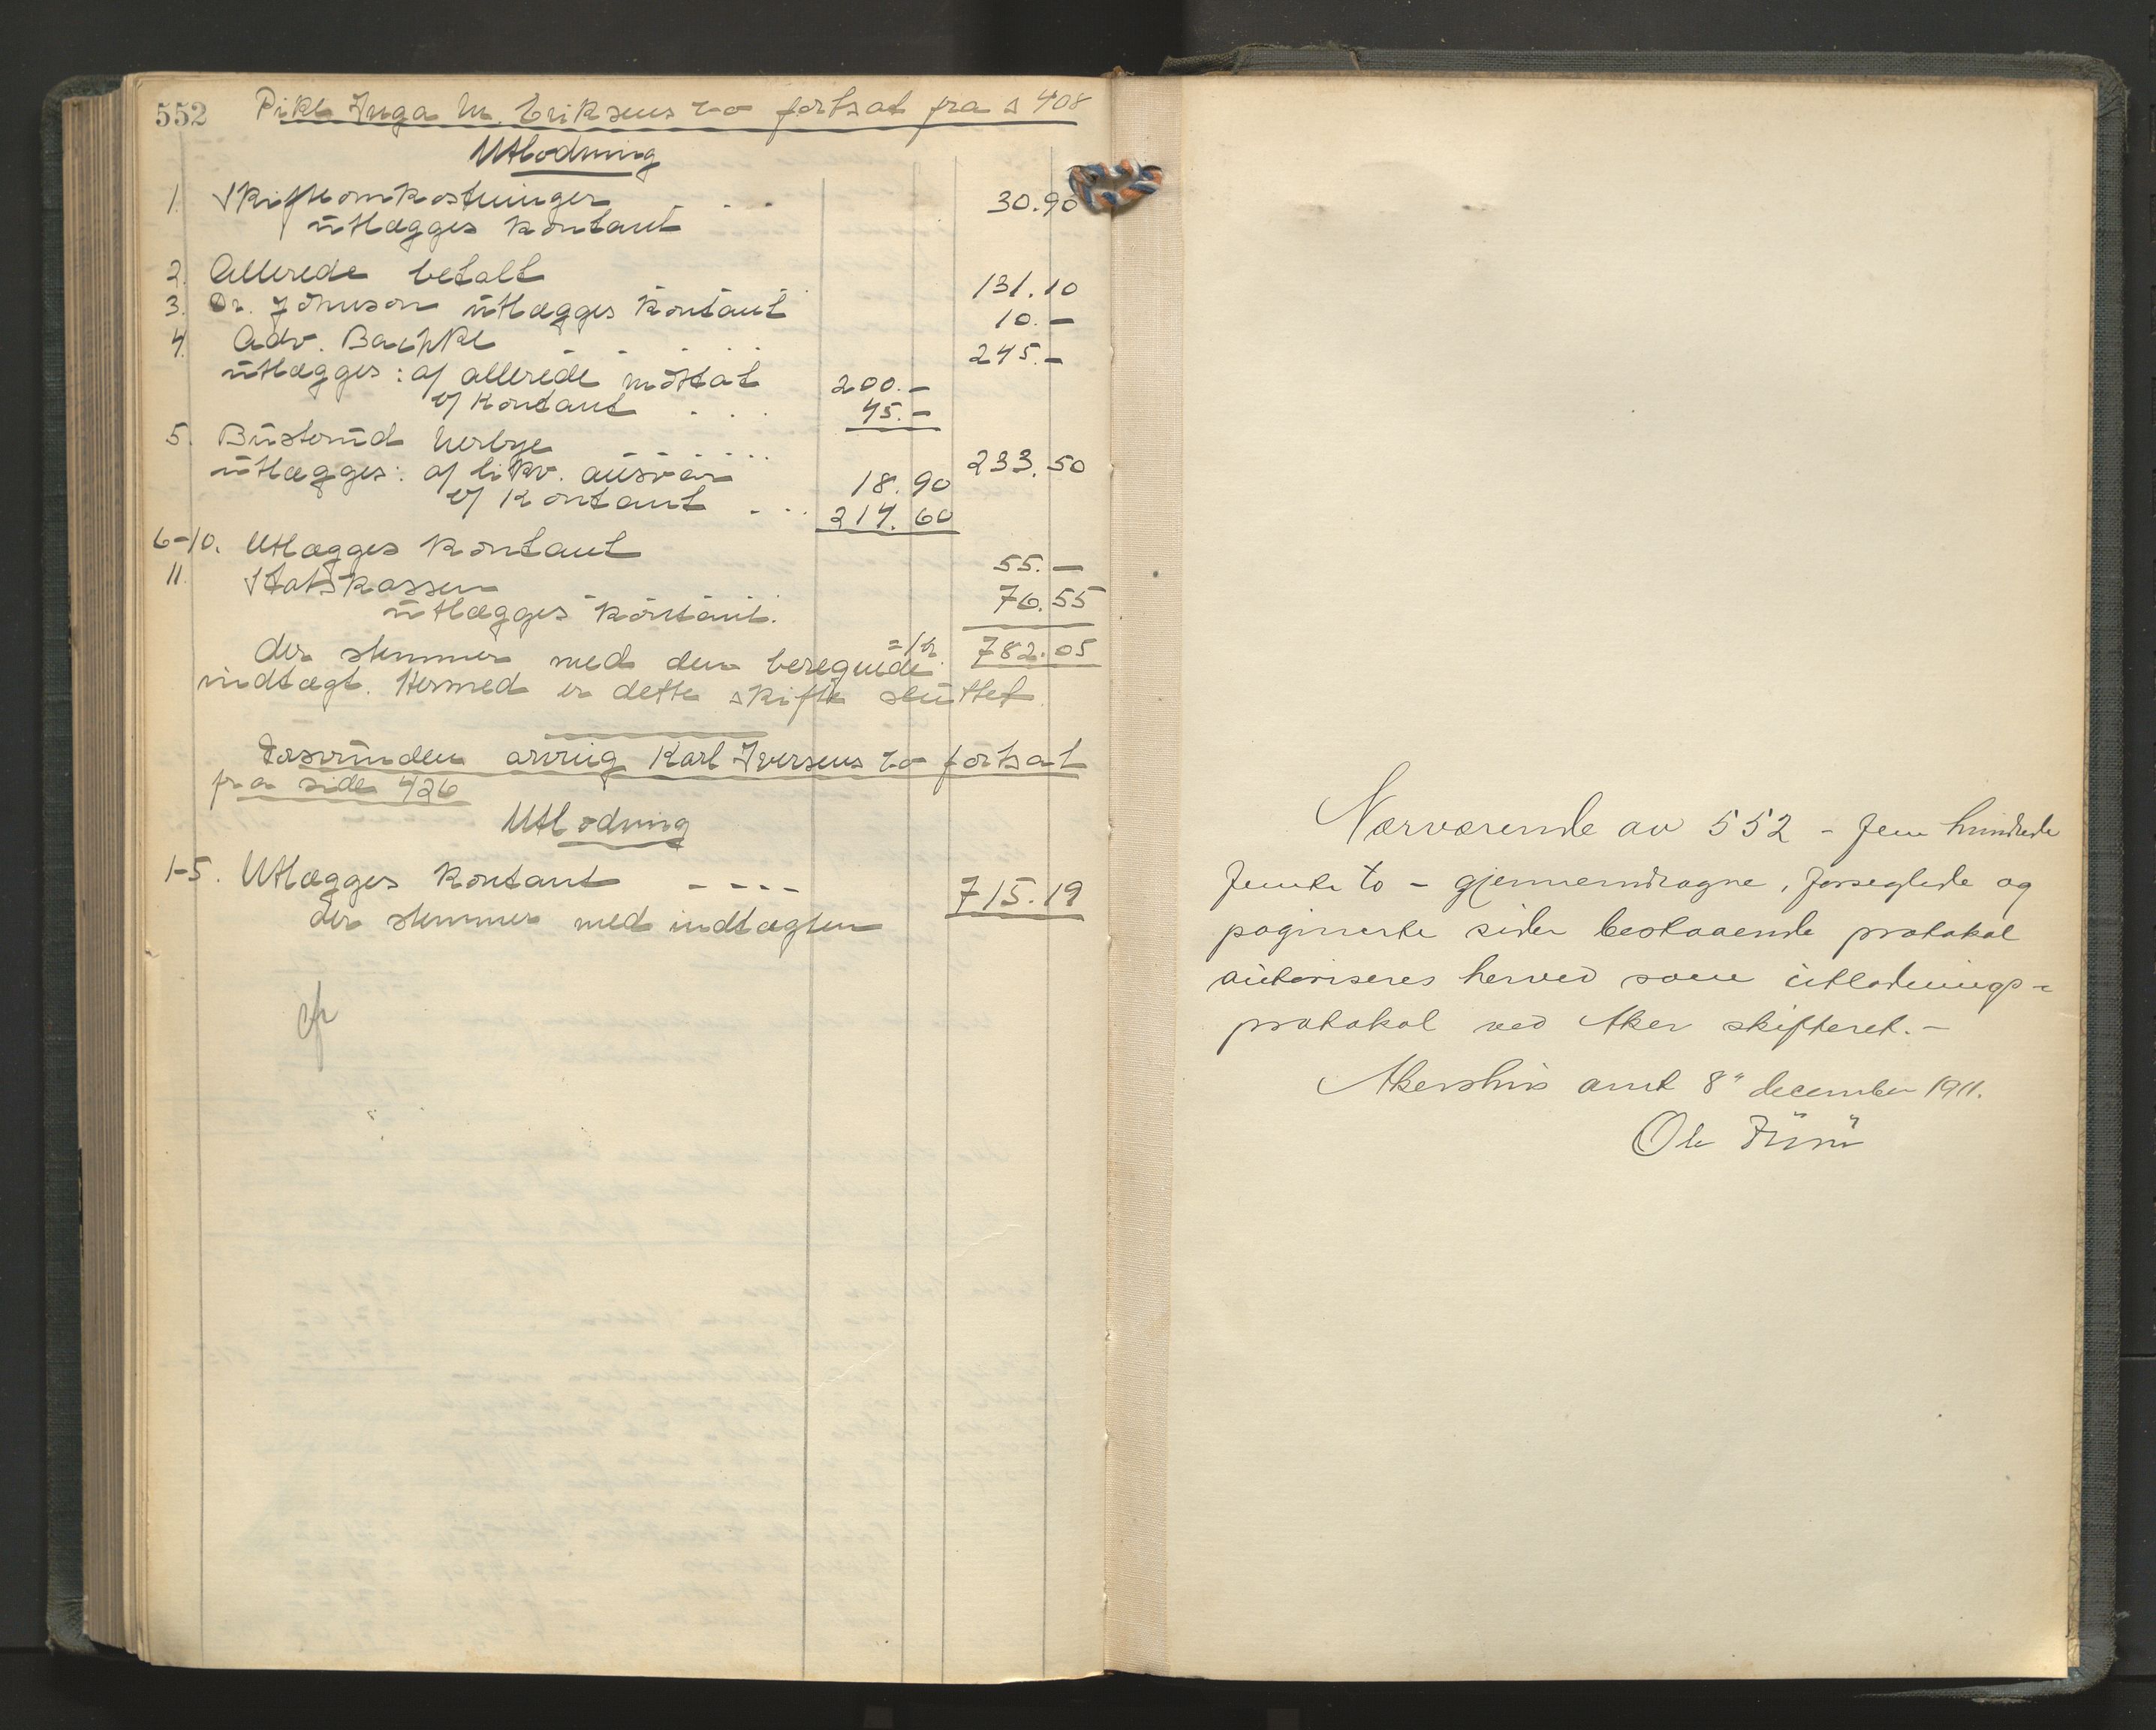 552 Pike Inga M. Eriksens bo fortsat fra s 408
Utlodning
1. Skifteomkostninger . . . 30.90
utlægges kontant
2. Allerede betalt 131.10
3. Dr. Johnson utlægges kontant 10.–
4. Adv. Bachke . . . . 245.–
utlægges: af allerede mottat 200.–
v/ kontant . . . 45.–
5. Busterud Nerbye . . . . 233.50
utlægges: af likv. ansvar 18.90
v/ kontant . . . 214.60
6-10. Utlægges kontant 55.–
11. Statskassen 76.55
utlægges kontant.
= kr. 782.05
der stemmer med den beregnede
indtægt. Hermed er dette skifte sluttet.
Forsvunden arving Karl Iversens bo fortsat
fra side 426
Utlodning
1-5. Utlægges kontant - - - - 715.19
der stemmer med indtægten
Nærværende av 552 - fem hundrede
femti to - gjennemdragne, forseglede og
paginerte sider bestaaende protokol
autoriseres herved som utlodnings-
protokol ved Aker skifteret. -
Akershus amt 8" december 1911.
Ole